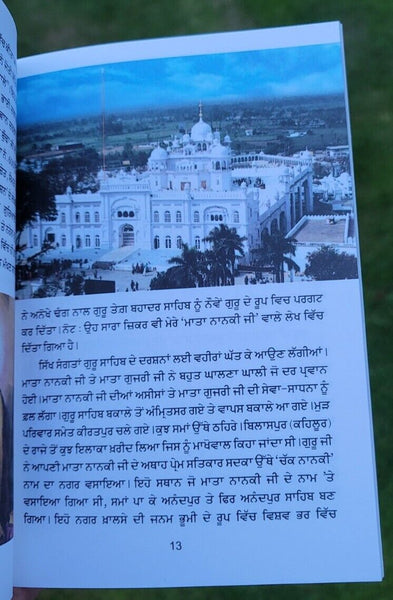 ਨੇ ਅਨੋਖੇ ਢੰਗ ਨਾਲ ਗੁਰੂ ਤੇਗ਼ ਬਹਾਦਰ ਸਾਹਿਬ ਨੂੰ ਨੌਵੇਂ ਗੁਰੂ ਦੇ ਰੂਪ ਵਿਚ ਪਰਗਟ
ਕਰ ਦਿੱਤਾ। ਨੋਟ : ਉਹ ਸਾਰਾ ਜ਼ਿਕਰ ਵੀ ਮੇਰੇ 'ਮਾਤਾ ਨਾਨਕੀ ਜੀ' ਵਾਲੇ ਲੇਖ ਵਿੱਚ
ਦਿੱਤਾ ਗਿਆ ਹੈ।
ਸਿੱਖ ਸੰਗਤਾਂ ਗੁਰੂ ਸਾਹਿਬ ਦੇ ਦਰਸ਼ਨਾਂ ਲਈ ਵਹੀਰਾਂ ਘੱਤ ਕੇ ਆਉਣ ਲੱਗੀਆਂ।
ਮਾਤਾ ਨਾਨਕੀ ਜੀ ਤੇ ਮਾਤਾ ਗੁਜਰੀ ਜੀ ਨੇ ਬਹੁਤ ਘਾਲਣਾ ਘਾਲੀ ਜੋ ਦਰ ਪ੍ਰਵਾਨ
ਹੋਈ। ਮਾਤਾ ਨਾਨਕੀ ਜੀ ਦੀਆਂ ਅਸੀਸਾਂ ਤੇ ਮਾਤਾ ਗੁਜਰੀ ਜੀ ਦੀ ਸੇਵਾ-ਸਾਧਨਾ ਨੂੰ
ਫ਼ਲ ਲੱਗਾ। ਗੁਰੂ ਸਾਹਿਬ ਬਕਾਲੇ ਤੋਂ ਅੰਮ੍ਰਿਤਸਰ ਗਏ ਤੇ ਵਾਪਸ ਬਕਾਲੇ ਆ ਗਏ। ਮੁੜ
ਪਰਿਵਾਰ ਸਮੇਤ ਕੀਰਤਪੁਰ ਚਲੇ ਗਏ। ਕੁਝ ਸਮਾਂ ਉੱਥੇ ਠਹਿਰੇ। ਬਿਲਾਸਪੁਰ (ਕਹਿਲੂਰ)
ਦੇ ਰਾਜੇ ਤੋਂ ਕੁਝ ਇਲਾਕਾ ਖ਼ਰੀਦ ਲਿਆ ਜਿਸ ਨੂੰ ਮਾਖੋਵਾਲ ਕਿਹਾ ਜਾਂਦਾ ਸੀ। ਗੁਰੂ ਜੀ
ਨੇ ਆਪਣੀ ਮਾਤਾ ਨਾਨਕੀ ਜੀ ਦੇ ਅਥਾਹ ਪ੍ਰੇਮ ਸਤਿਕਾਰ ਸਦਕਾ ਉੱਥੇ 'ਚੱਕ ਨਾਨਕੀ'
ਨਾਮ ਦਾ ਨਗਰ ਵਸਾਇਆ। ਇਹੋ ਸਥਾਨ ਜੋ ਮਾਤਾ ਨਾਨਕੀ ਜੀ ਦੇ ਨਾਮ 'ਤੇ
ਵਸਾਇਆ ਗਿਆ ਸੀ, ਸਮਾਂ ਪਾ ਕੇ ਅਨੰਦਪੁਰ ਤੇ ਫਿਰ ਅਨੰਦਪੁਰ ਸਾਹਿਬ ਬਣ
ਗਿਆ। ਇਹੋ ਨਗਰ ਖ਼ਾਲਸੇ ਦੀ ਜਨਮ ਭੂਮੀ ਦੇ ਰੂਪ ਵਿੱਚ ਵਿਸ਼ਵ ਭਰ ਵਿੱਚ
13